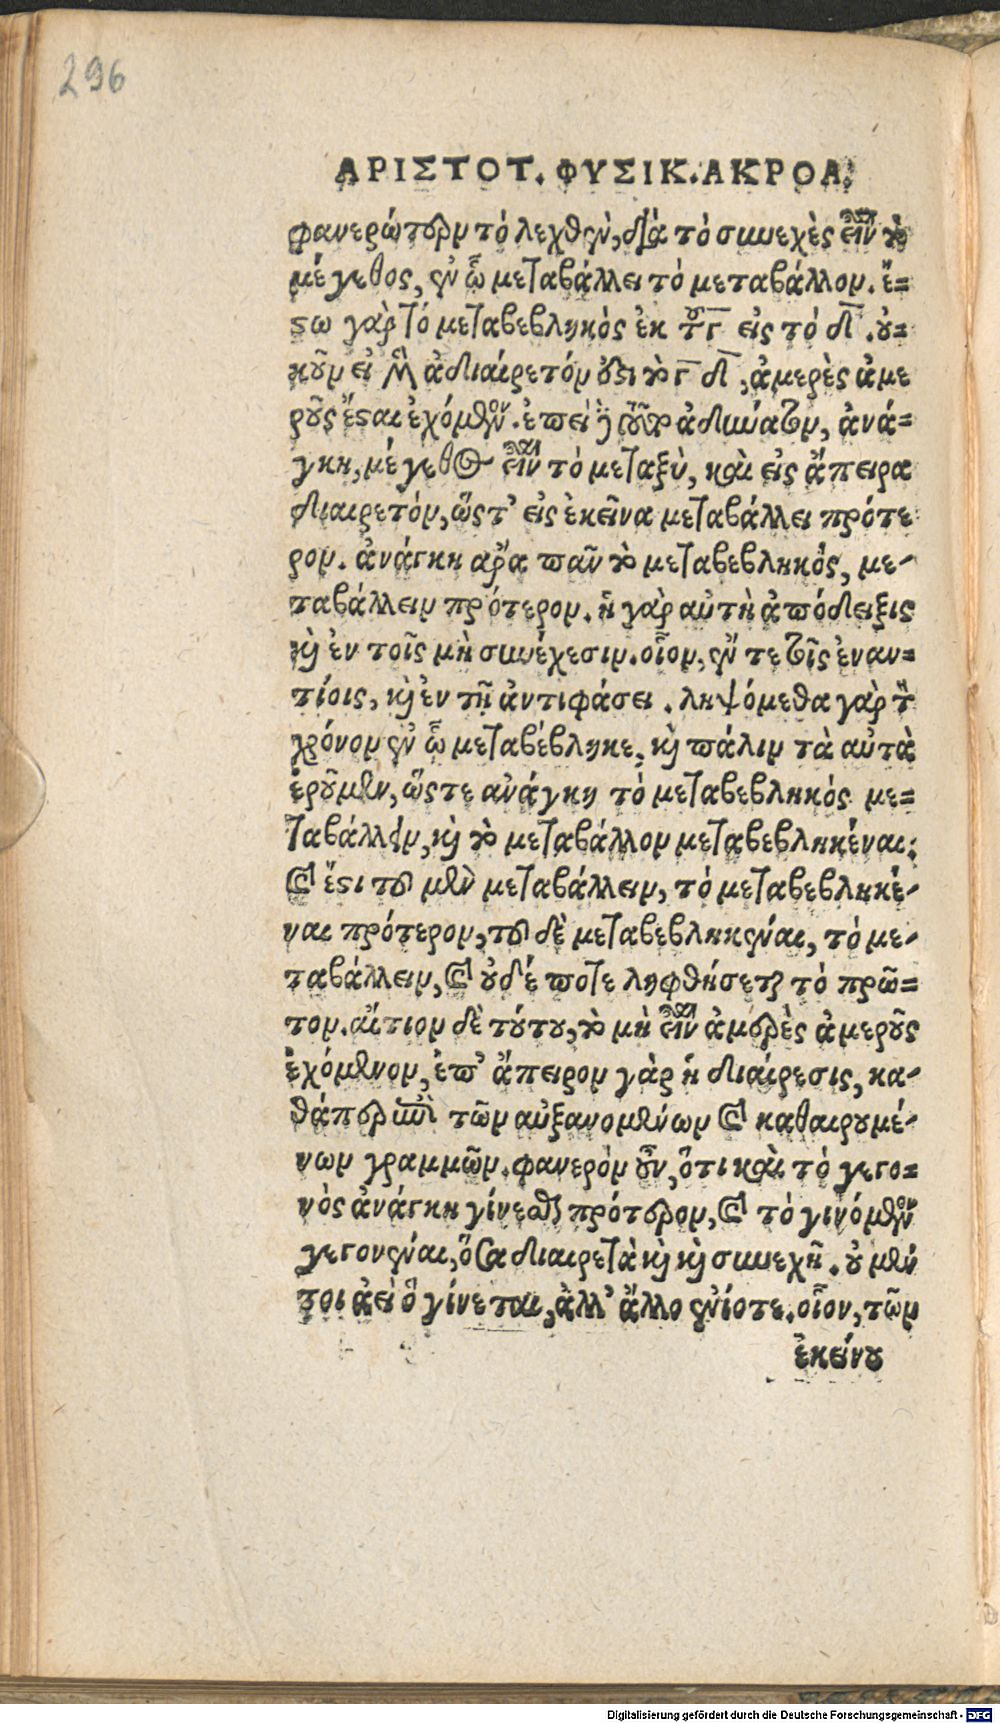 296
ΑΡΙΣΤΟΤ. ΦΥΣΙΚ. ΑΚΡΟΑ.
φανερώτερον τὸ λεχθὲν, διὰ τὸ συνεχὲς εἶναι τὸ
μέγεθος, ἐν ᾧ μεταβάλλει τὸ μεταβάλλον. ἔ=
στω γὰρ τό μεταβεβληκὸς ἐκ τοῦ γ εἰς τὸ δ. οὐ=
κοῦν εἰ μὲν ἀδιαίρετόν ἐστι τὸ γ δ, ἀμερὲς ἀμε
ροῦς ἔσται ἐχόμενον. ἐπεὶ δὲ τοῦτο ἀδύνατον, ἀνά=
γκη, μέγεθος εἶναι τὸ μεταξὺ, καὶ εἰς ἄπειρα
διαιρετόν, ὥστ' εἰς ἐκεῖνα μεταβάλλει πρότε
ρον. ἀνάγκη ἄρα πᾶν τὸ μεταβεβληκός, με-
ταβάλλειν πρότερον. ἡ γὰρ αὐτὴ ἀπόδειξις
καὶ ἐν τοῖς μὴ συνέχεσιν. οἷον, ἔν τε τοῖς ἐναν=
τίοις, καὶ ἐν τῇ ἀντιφάσει. ληψόμεθα γὰρ τὸν
χρόνον ἐν ᾧ μεταβέβληκε, καὶ πάλιν τὰ αὐτὰ
ἐροῦμεν, ὥστε ἀνάγκη τὸ μεταβεβληκός με=
ταβάλλειν, καὶ τὸ μεταβάλλον μεταβεβληκέναι:
καὶ ἔστι τοῦ μὲν μεταβάλλειν, τὸ μεταβεβληκέ-
ναι πρότερον, τοῦ δὲ μεταβεβληκέναι, τὸ με-
ταβάλλειν, καὶ οὐδέ ποτε ληφθήσεται τὸ πρῶ=
τον. αἴτιον δὲ τούτου, τὸ μὴ εἶναι ἀμερὲς ἀμεροῦς
ἐχόμενον, ἐπ' ἄπειρον γὰρ ἡ διαίρεσις, κα-
θάπερ ἐπὶ τῶν αὐξανομένων καὶ καθαιρουμέ-
νων γραμμῶν. φανερὸν οὖν, ὅτι καὶ τὸ γεγο=
νὸς ἀνάγκη γίνεσθαι πρότερον, καὶ τὸ γινόμενον
γεγονέναι, ὅσα διαιρετὰ καὶ καὶ συνεχῆ. οὐ μέν
τοι ἀεὶ ὃ γίνεται, ἀλλ' ἄλλο ἐνίοτε. οἷον, τῶν
ἐκείνου
Digitalisierung gefördert durch die Deutsche Forschungsgemeinschaft - DFG